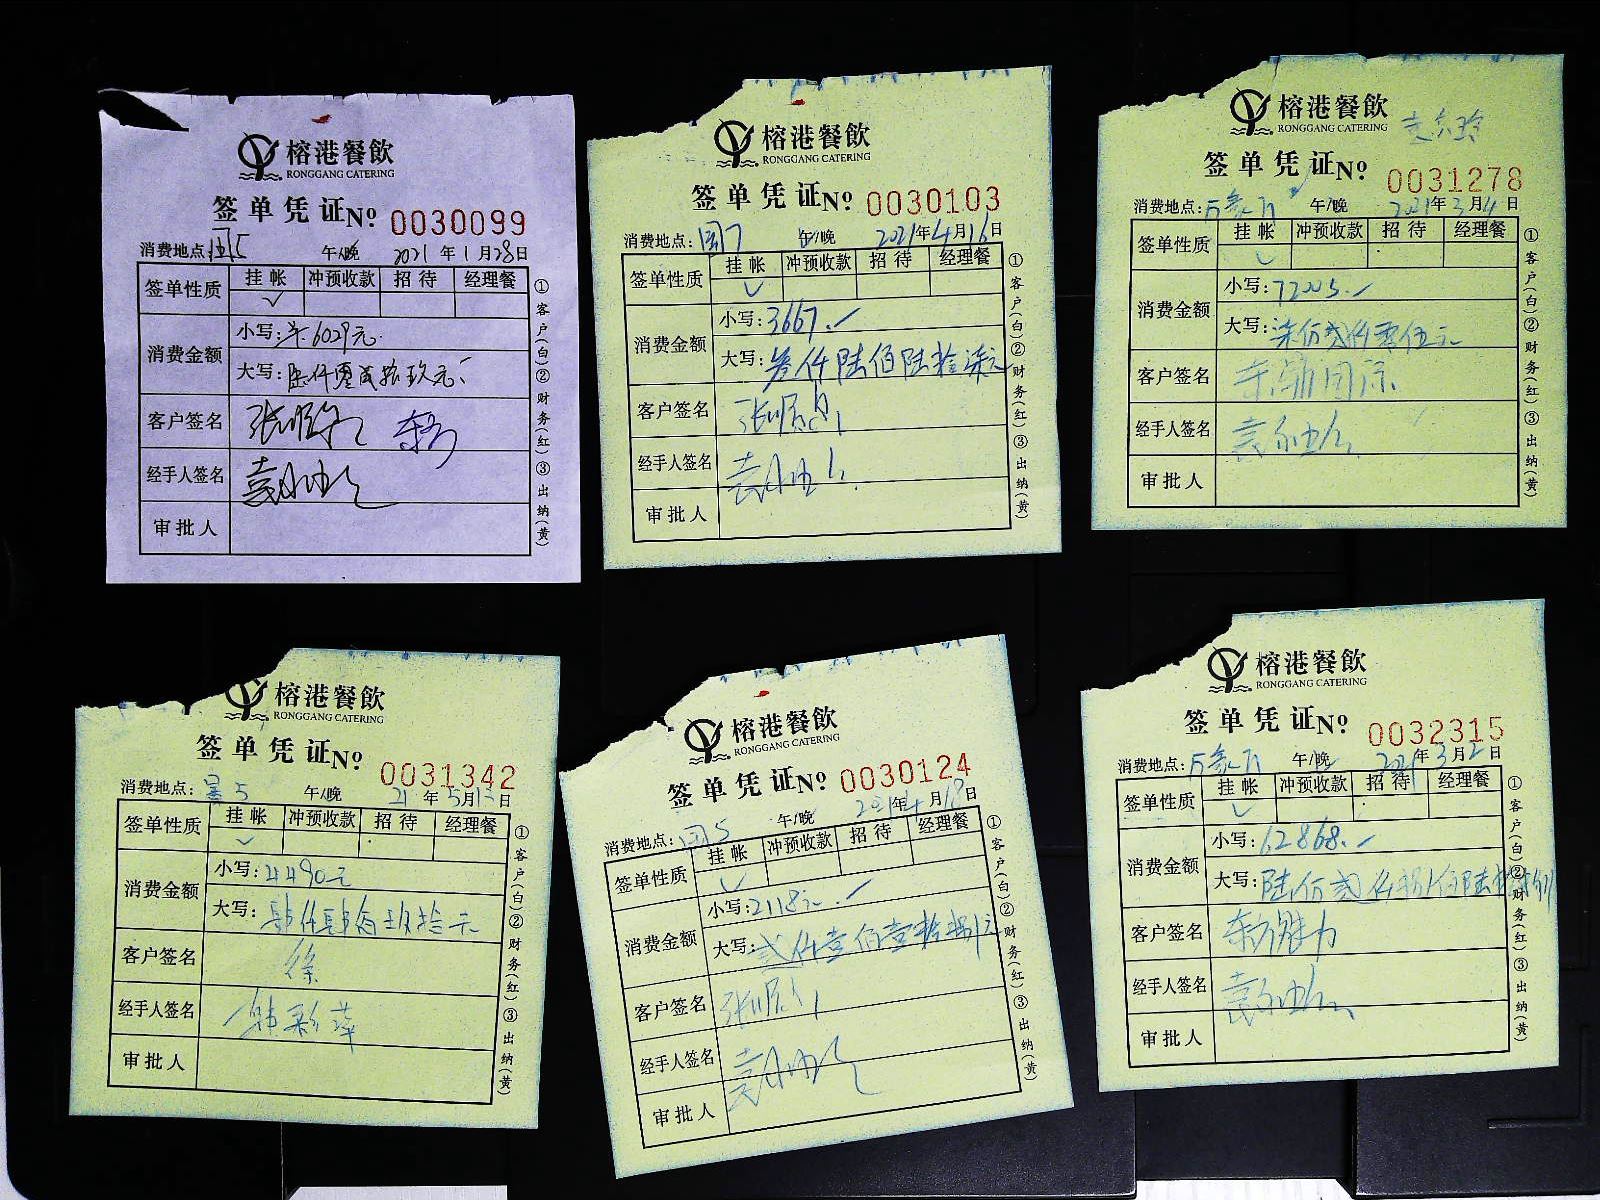 榕港餐飲
RONGGANG CATERING
签单凭证№ 0030099
消费地点: 午/晚 2021年1月28日
签单性质 挂帐 冲预收款 招待 经理餐
✓
消费金额 小写: 6029元
大写: 陆仟零贰拾玖元
客户签名
经手人签名
审批人
①客户(白)②财务(红)③出纳(黄)
榕港餐飲
RONGGANG CATERING
签单凭证№ 0030103
消费地点: 午/晚 2021年4月16日
签单性质 挂帐 冲预收款 招待 经理餐
✓
消费金额 小写: 3667.
大写: 叁仟陆佰陆拾柒元
客户签名
经手人签名
审批人
①客户(白)②财务(红)③出纳(黄)
榕港餐飲
RONGGANG CATERING
签单凭证№ 0031278
消费地点: 午/晚 2021年3月4日
签单性质 挂帐 冲预收款 招待 经理餐
✓
消费金额 小写: 7205.
大写: 柒仟贰佰零伍元
客户签名
经手人签名
审批人
①客户(白)②财务(红)③出纳(黄)
榕港餐飲
RONGGANG CATERING
签单凭证№ 0031342
消费地点: 午/晚 21年5月1日
签单性质 挂帐 冲预收款 招待 经理餐
✓
消费金额 小写: 4490元
大写: 肆仟肆佰玖拾元
客户签名 徐
经手人签名 韩彩萍
审批人
①客户(白)②财务(红)③出纳(黄)
榕港餐飲
RONGGANG CATERING
签单凭证№ 0030124
消费地点: 午/晚 2021年4月18日
签单性质 挂帐 冲预收款 招待 经理餐
✓
消费金额 小写: 2118元.
大写: 贰仟壹佰壹拾捌元
客户签名
经手人签名
审批人
①客户(白)②财务(红)③出纳(黄)
榕港餐飲
RONGGANG CATERING
签单凭证№ 0032315
消费地点: 午/晚 2021年3月2日
签单性质 挂帐 冲预收款 招待 经理餐
✓
消费金额 小写: 62868.
大写: 陆万贰仟捌佰陆拾捌
客户签名
经手人签名
审批人
①客户(白)②财务(红)③出纳(黄)